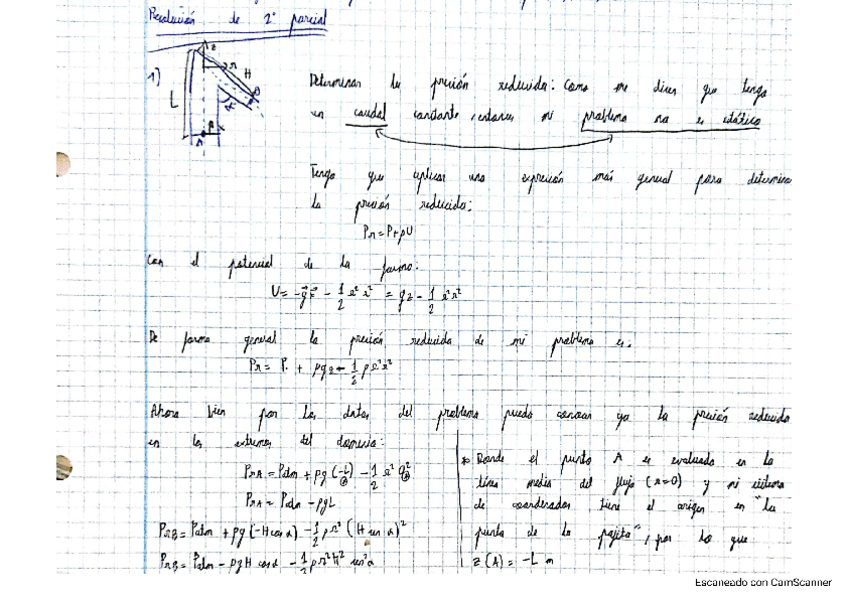 Resolución de 2° parcial
1)
z
r
H
B
L
α
R
A
Determinar la presión reducida: Como me dicen que tengo
un caudal constante, entonces mi problema no es estático
Tengo que aplicar una expresión más general para determinar
la presión reducida:
Pr = P + ρU
Con el potencial de la forma:
U = -g⃗ r⃗ - 1/2 Ω² r² = gz - 1/2 Ω² r²
De forma general la presión reducida de mi problema es:
Pr = P + ρgz - 1/2 ρ Ω² r²
Ahora bien por los datos del problema puedo conocer ya la presión reducida
en los extremos del dominio:
PrA = Patm + ρg(-L) - 1/2 Ω² 0²
PrA = Patm - ρgL
PrB = Patm + ρg(-H cos α) - 1/2 ρΩ² (H sen α)²
PrB = Patm - ρgH cos α - 1/2 ρΩ² H² sen² α
* Donde el punto A es evaluado en la
línea media del flujo (r=0) y mi sistema
de coordenadas tiene el origen en "la
punta de la pajita", por lo que
z(A) = -L m
Escaneado con CamScanner